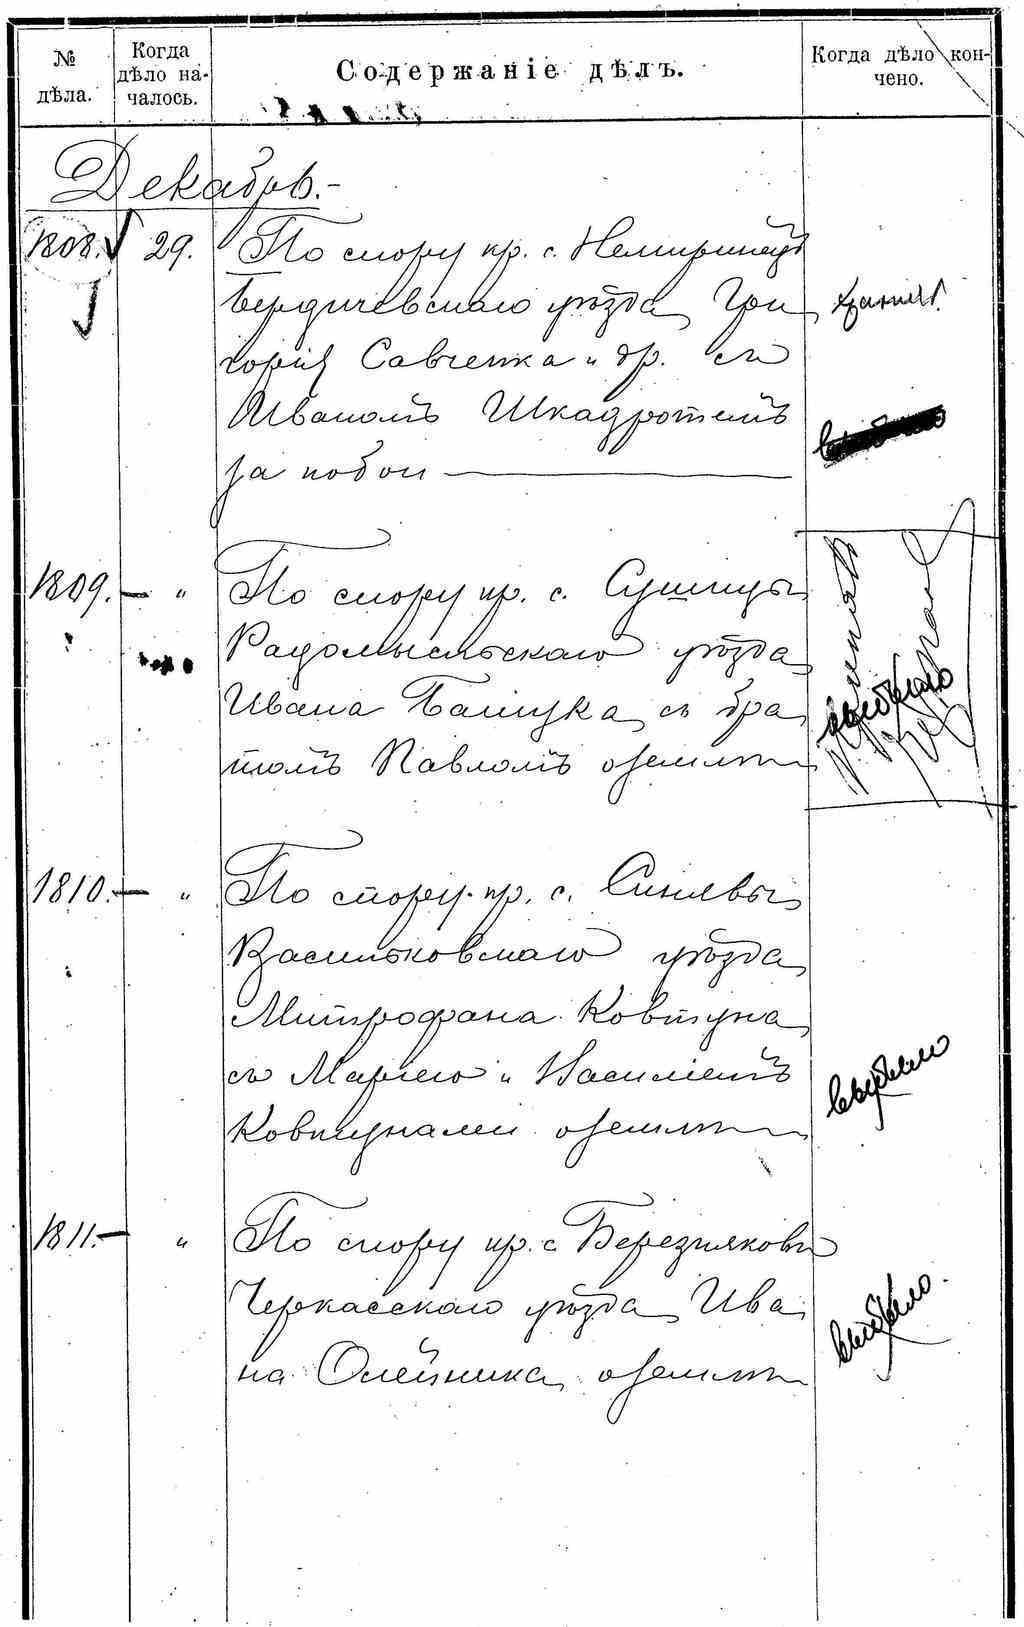 № дѣла.
Когда дѣло началось.
Содержаніе дѣлъ.
Когда дѣло кончено.
Декабрь.-
1808. 29. По спору кр. с. Немиринецъ
Бердичевскаго уѣзда Гри
горія Савченка и др. съ
Иваномъ Шкадротомъ
за побои
1809. — " По спору кр. с.
Радомысльскаго уѣзда
Ивана съ бра
томъ Павломъ о землѣ
1810. — " По спору кр. с. Синявы
Васильковскаго уѣзда
Митрофана Ковтуна
съ Маріею и Василіемъ
Ковтунами о землѣ
выбыло
1811. — " По спору кр. с. Березняковъ
Черкасскаго уѣзда Ива
на Олейника о землѣ
выбыло.